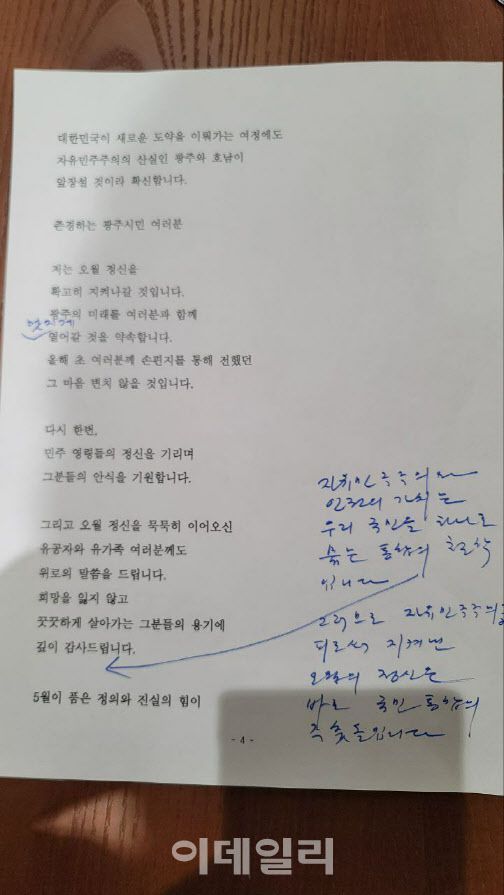 대한민국이 새로운 도약을 이뤄가는 여정에도
자유민주주의의 산실인 광주와 호남이
앞장설 것이라 확신합니다.
존경하는 광주시민 여러분
저는 오월 정신을
확고히 지켜나갈 것입니다.
광주의 미래를 여러분과 함께
멋지게
열어갈 것을 약속합니다.
올해 초 여러분께 손편지를 통해 전했던
그 마음 변치 않을 것입니다.
다시 한번,
민주 영령들의 정신을 기리며
그분들의 안식을 기원합니다.
그리고 오월 정신을 묵묵히 이어오신
유공자와 유가족 여러분께도
위로의 말씀을 드립니다.
희망을 잃지 않고
꿋꿋하게 살아가는 그분들의 용기에
깊이 감사드립니다.
5월이 품은 정의와 진실의 힘이
자유민주주의와
인권의 가치는
우리 국민을 하나로
묶는 통합의 철학
입니다
그러므로 자유민주주의를
피로써 지켜낸
오월의 정신은
바로 국민 통합의
주춧돌입니다
- 4 -
이데일리